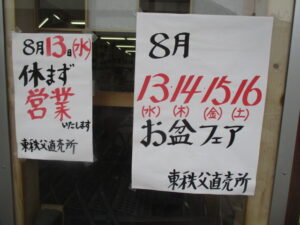 8月13日(水)
休まず
営業
いたします
東秩父直売所
8月
13・14・15・16
(水)(木)(金)(土)
お盆フェア
東秩父直売所